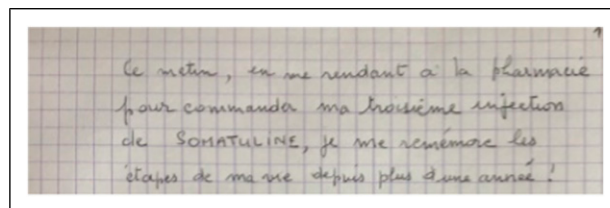 1
Ce matin, en me rendant à la pharmacie
pour commander ma troisième injection
de SOMATULINE, je me remémore les
étapes de ma vie depuis plus d'une année !